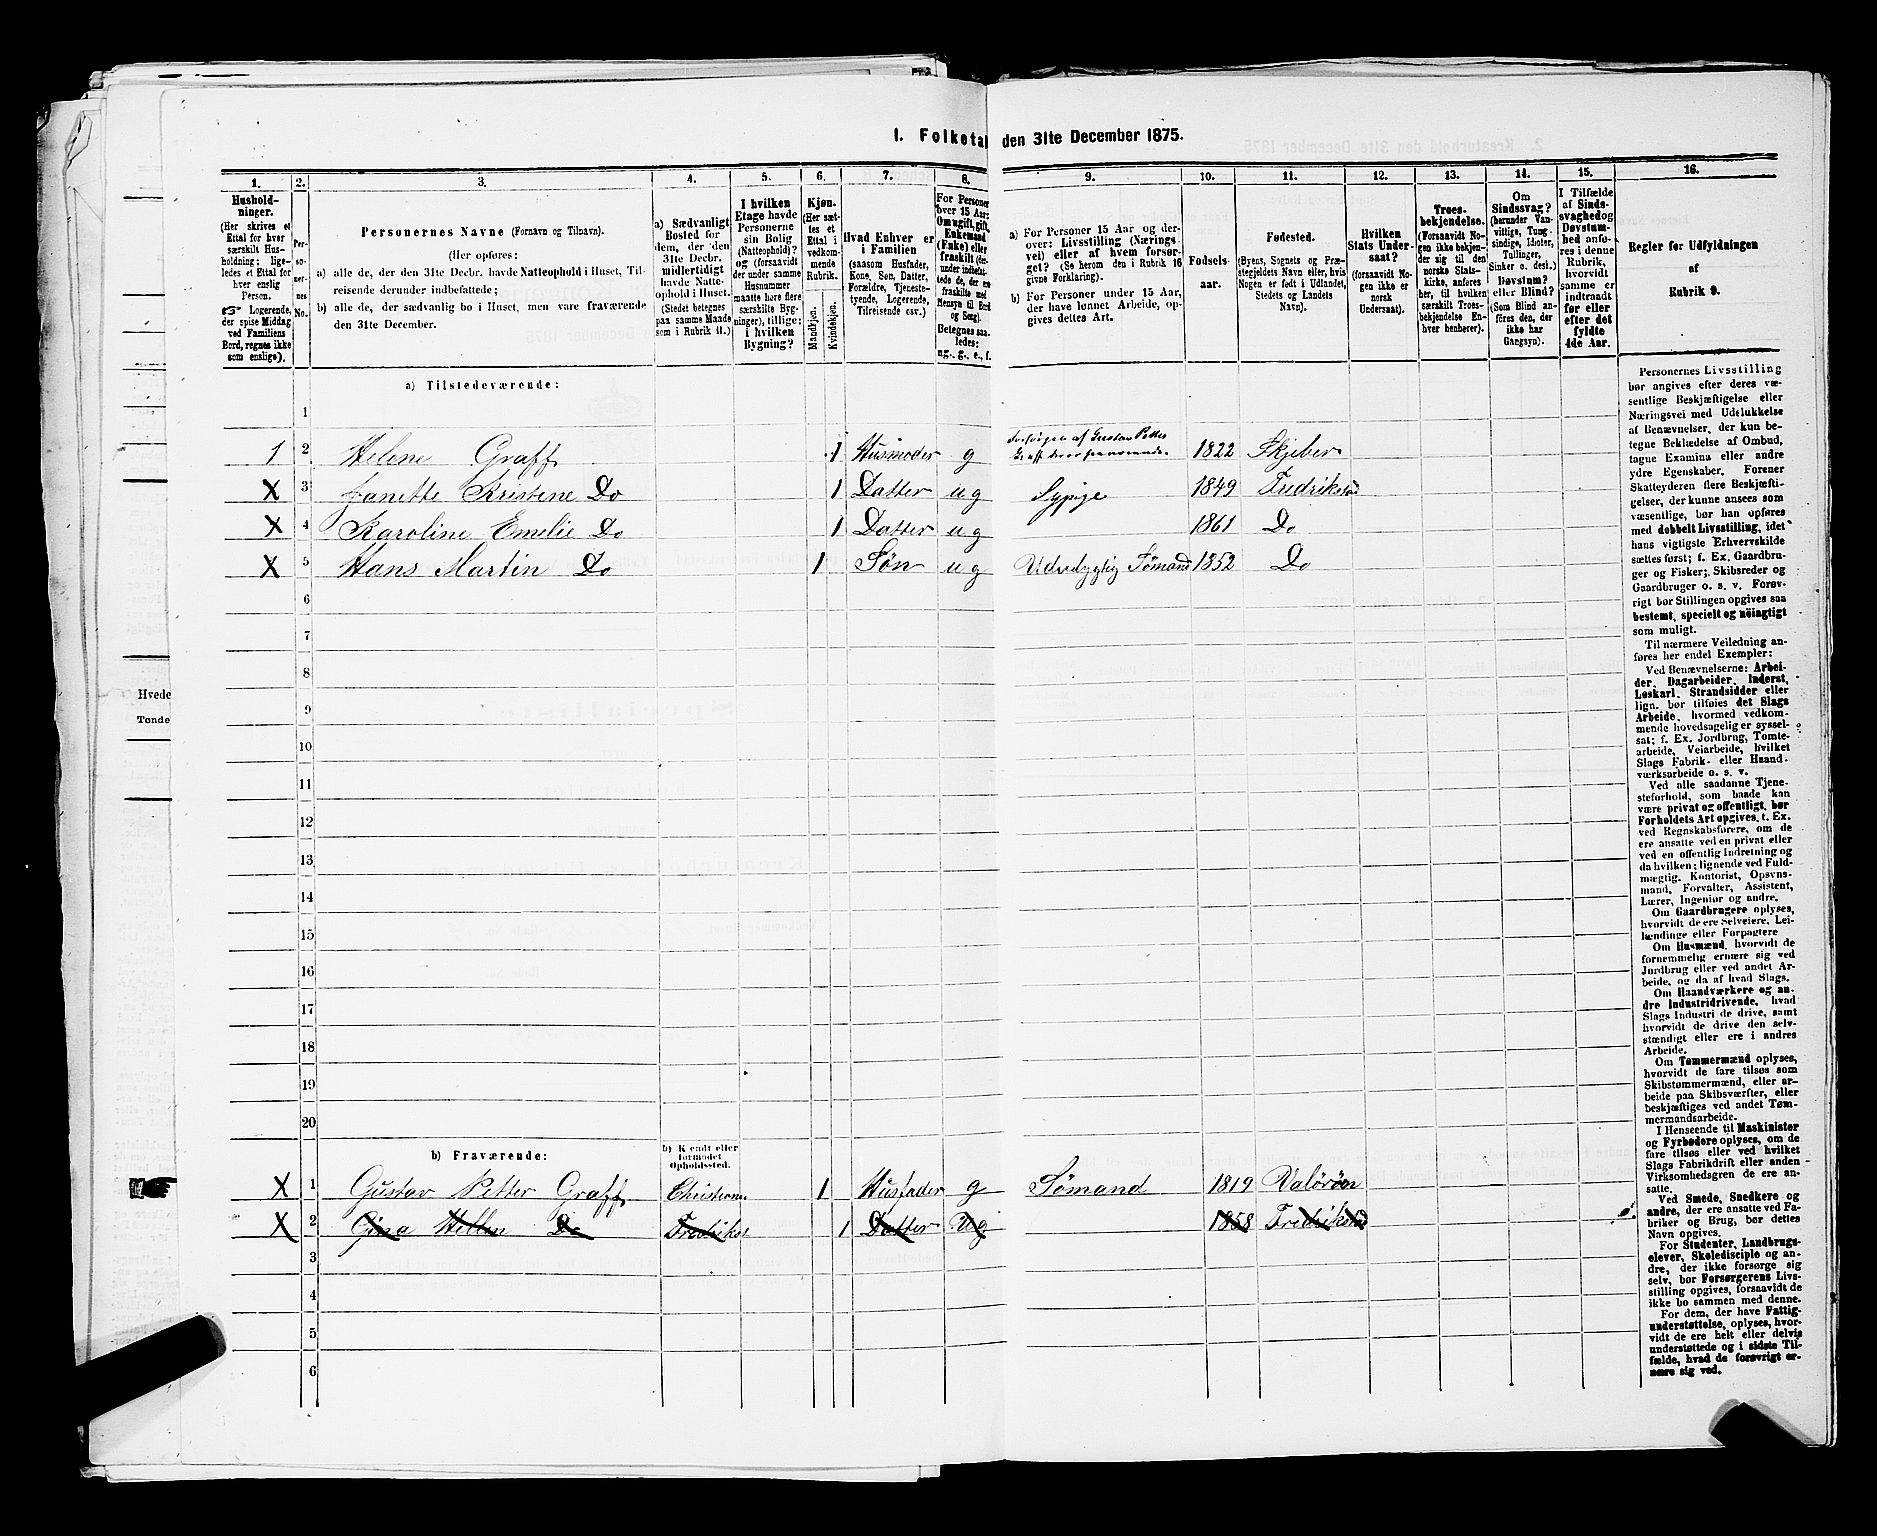 I. Folketal den 31te December 1875.
1. 2. 3. 4. 5. 6. 7. 8. 9. 10. 11. 12. 13. 14. 15. 16.
Hushold-
ninger.
(Her skrives et
Ettal for hver
særskilt Hus-
holdning; lige-
ledes et Ettal for
hver enslig
Person.
☞ Logerende,
der spise Middag
ved Familiens
Bord, regnes ikke
som enslige).
Per-
so-
ner-
nes
No.
Personernes Navne (Fornavn og Tilnavn).
(Her opføres:
a) alle de, der den 31te Decbr. havde Natteophold i Huset, Til-
reisende derunder indbefattede;
b) alle de, der sædvanlig bo i Huset, men vare fraværende
den 31te December.
a) Sædvanligt
Bosted for
dem, der den
31te Decbr.
midlertidigt
havde Natte-
ophold i Huset.
(Stedet betegnes
paa samme Maade
som i Rubrik 11.)
I hvilken
Etage havde
Personerne
sin Bolig
(Natteophold)?
og (forsaavidt
der under samme
Husnummer
maatte høre flere
særskilte Byg-
ninger), tillige:
i hvilken
Bygning?
Kjøn.
(Her sæt-
tes et
Ettal i
vedkom-
mende
Rubrik.
Mandkjøn.
Kvindekjøn.
Hvad Enhver er
i Familien
(saasom Husfader,
Kone, Søn, Datter,
Forældre, Tjeneste-
tyende, Logerende,
Tilreisende osv.)
For Personer
over 15 Aar:
Om ugift, gift,
Enkemand
(Enke) eller
fraskilt
Betegnes saa-
ledes:
ug., g., e., f.
a) For Personer 15 Aar og der-
over: Livsstilling (Nærings-
vei) eller af hvem forsør-
get? (Se herom den i Rubrik 16
givne Forklaring).
b) For Personer under 15 Aar,
der have lønnet Arbeide, op-
gives dettes Art.
Fødsels-
aar.
Fødested.
(Byens, Sognets og Præ-
stegjeldets Navn eller, hvis
Nogen er født i Udlandet,
Stedets og Landets
Navn).
Hvilken
Stats Under-
saat?
(forsaavidt No-
gen ikke er
norsk
Undersaat).
Troes-
bekjendelse.
(Forsaavidt No-
gen ikke bekjen-
der sig til den
norske Stats-
kirke, anføres
her, til hvilken
særskilt Troes-
bekjendelse En-
hver henhører).
Om
Sindssvag?
(herunder Van-
vittige, Tung-
sindige, Idioter,
Tullinger,
Sinker o. desl.)
Døvstum?
eller Blind?
(Som Blind an-
føres den, der
ikke har
Gangsyn).
I Tilfælde
af Sinds-
svaghed og
Døvstum-
hed anfø-
res i denne
Rubrik,
hvorvidt
samme er
indtraadt
før eller
efter det
fyldte
4de Aar.
Regler for Udfyldningen
af
Rubrik 9.
a) Tilstedeværende:
1
1 2 Helene Graff 1 Husmoder g Forsørges af Gustav Petter Graff 1822 Skjeber
X 3 Janette Kristene Do 1 Datter ug Sypige 1849 Fredrikstad
X 4 Karoline Emelie Do 1 Datter ug 1861 Do
X 5 Hans Martin Do 1 Søn ug Sømand 1852 Do
6
7
8
9
10
11
12
13
14
15
16
17
18
19
20
b) Fraværende: b) Kjendt eller
formodet
Opholdssted.
X 1 Gustav Petter Graff 1 Husfader g Sømand 1819
X 2 Gina Hellen Do Fredrikst 1 Datter Ug 1858 Fredrikstad
3
4
5
6
Personernes Livsstilling
bør angives efter deres væ-
sentlige Beskjæftigelse eller
Næringsvei med Udelukkelse
af Benævnelser, der kun be-
tegne Beklædelse af Ombud,
tagne Examina eller andre
ydre Egenskaber. Forener
Skatteyderen flere Beskjæfti-
gelser, der kunne ansees som
væsentlige, bør han opføres
med dobbelt Livsstilling, idet
hans vigtigste Erhvervskilde
sættes først; f. Ex. Gaardbru-
ger og Fisker; Skibsreder og
Gaardbruger o. s. v. Forøv-
rigt bør Stillingen opgives saa
bestemt, specielt og nöiagtigt
som muligt.
Til nærmere Veiledning an-
føres her endel Exempler:
Ved Benævnelserne: Arbei-
der, Dagarbeider, Inderst,
Løskarl, Strandsidder eller
lign. bør tilføies det Slags
Arbeide, hvormed vedkom-
mende hovedsagelig er syssel-
sat; f. Ex. Jordbrug, Tomte-
arbeide, Veiarbeide, hvilket
Slags Fabrik- eller Haand-
værksarbeide o. s. v.
Ved alle saadanne Tjene-
steforhold, som baade kan
være privat og offentligt, bør
Forholdets Art opgives, t. Ex.
ved Regnskabsførere, om de
ere ansatte ved en privat eller
ved en offentlig Indretning og
da hvilken; lignende ved Fuld-
mægtig, Kontorist, Opsyns-
mand, Forvalter, Assistent,
Lærer, Ingeniør og andre.
Om Gaardbrugere oplyses,
hvorvidt de ere Selveiere, Lei-
lændinge eller Forpagtere
Om Husmænd, hvorvidt de
fornemmelig ernære sig ved
Jordbrug eller ved andet Ar-
beide, og da af hvad Slags.
Om Haandværkere og an-
dre Industridrivende, hvad
Slags Industri de drive, samt
hvorvidt de drive den selv-
stændigt eller ere i andres
Arbeide.
Om Tømmermænd oplyses,
hvorvidt de fare tilsøs som
Skibstømmermænd, eller ar-
beide paa Skibsværfter, eller
beskjæftiges ved andet Tøm-
mermandsarbeide.
I Henseende til Maskinister
og Fyrbødere oplyses, om de
fare tilsøs eller ved hvilket
Slags Fabrikdrift eller anden
Virksomhedsgren de ere an-
satte.
Ved Smede, Snedkere og
andre, der ere ansatte ved Fa-
briker og Brug, bør dettes
Navn opgives.
For Studenter, Landbrugs-
elever, Skoledisciple og an-
dre, der ikke forsørge sig
selv, bør Forsørgerens Livs-
stilling opgives, forsaavidt de
ikke bo sammen med denne.
For dem, der have Fattig-
understøttelse, oplyses, hvor-
vidt de ere helt eller delvis
understøttede og i sidste Til-
fælde, hvad de forøvrigt er-
nære sig ved.
Hvede
Tønde